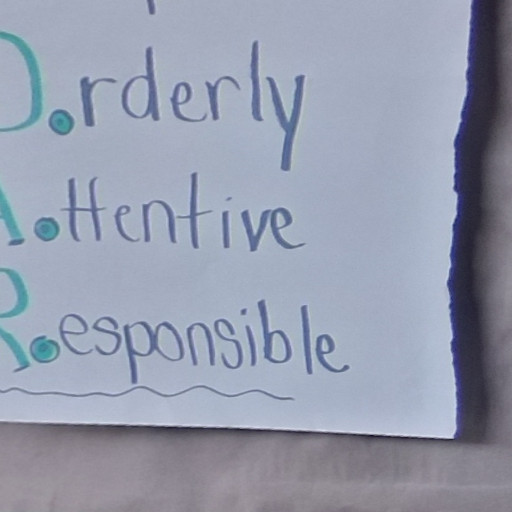 O.rderly
A.ttentive
R.esponsible